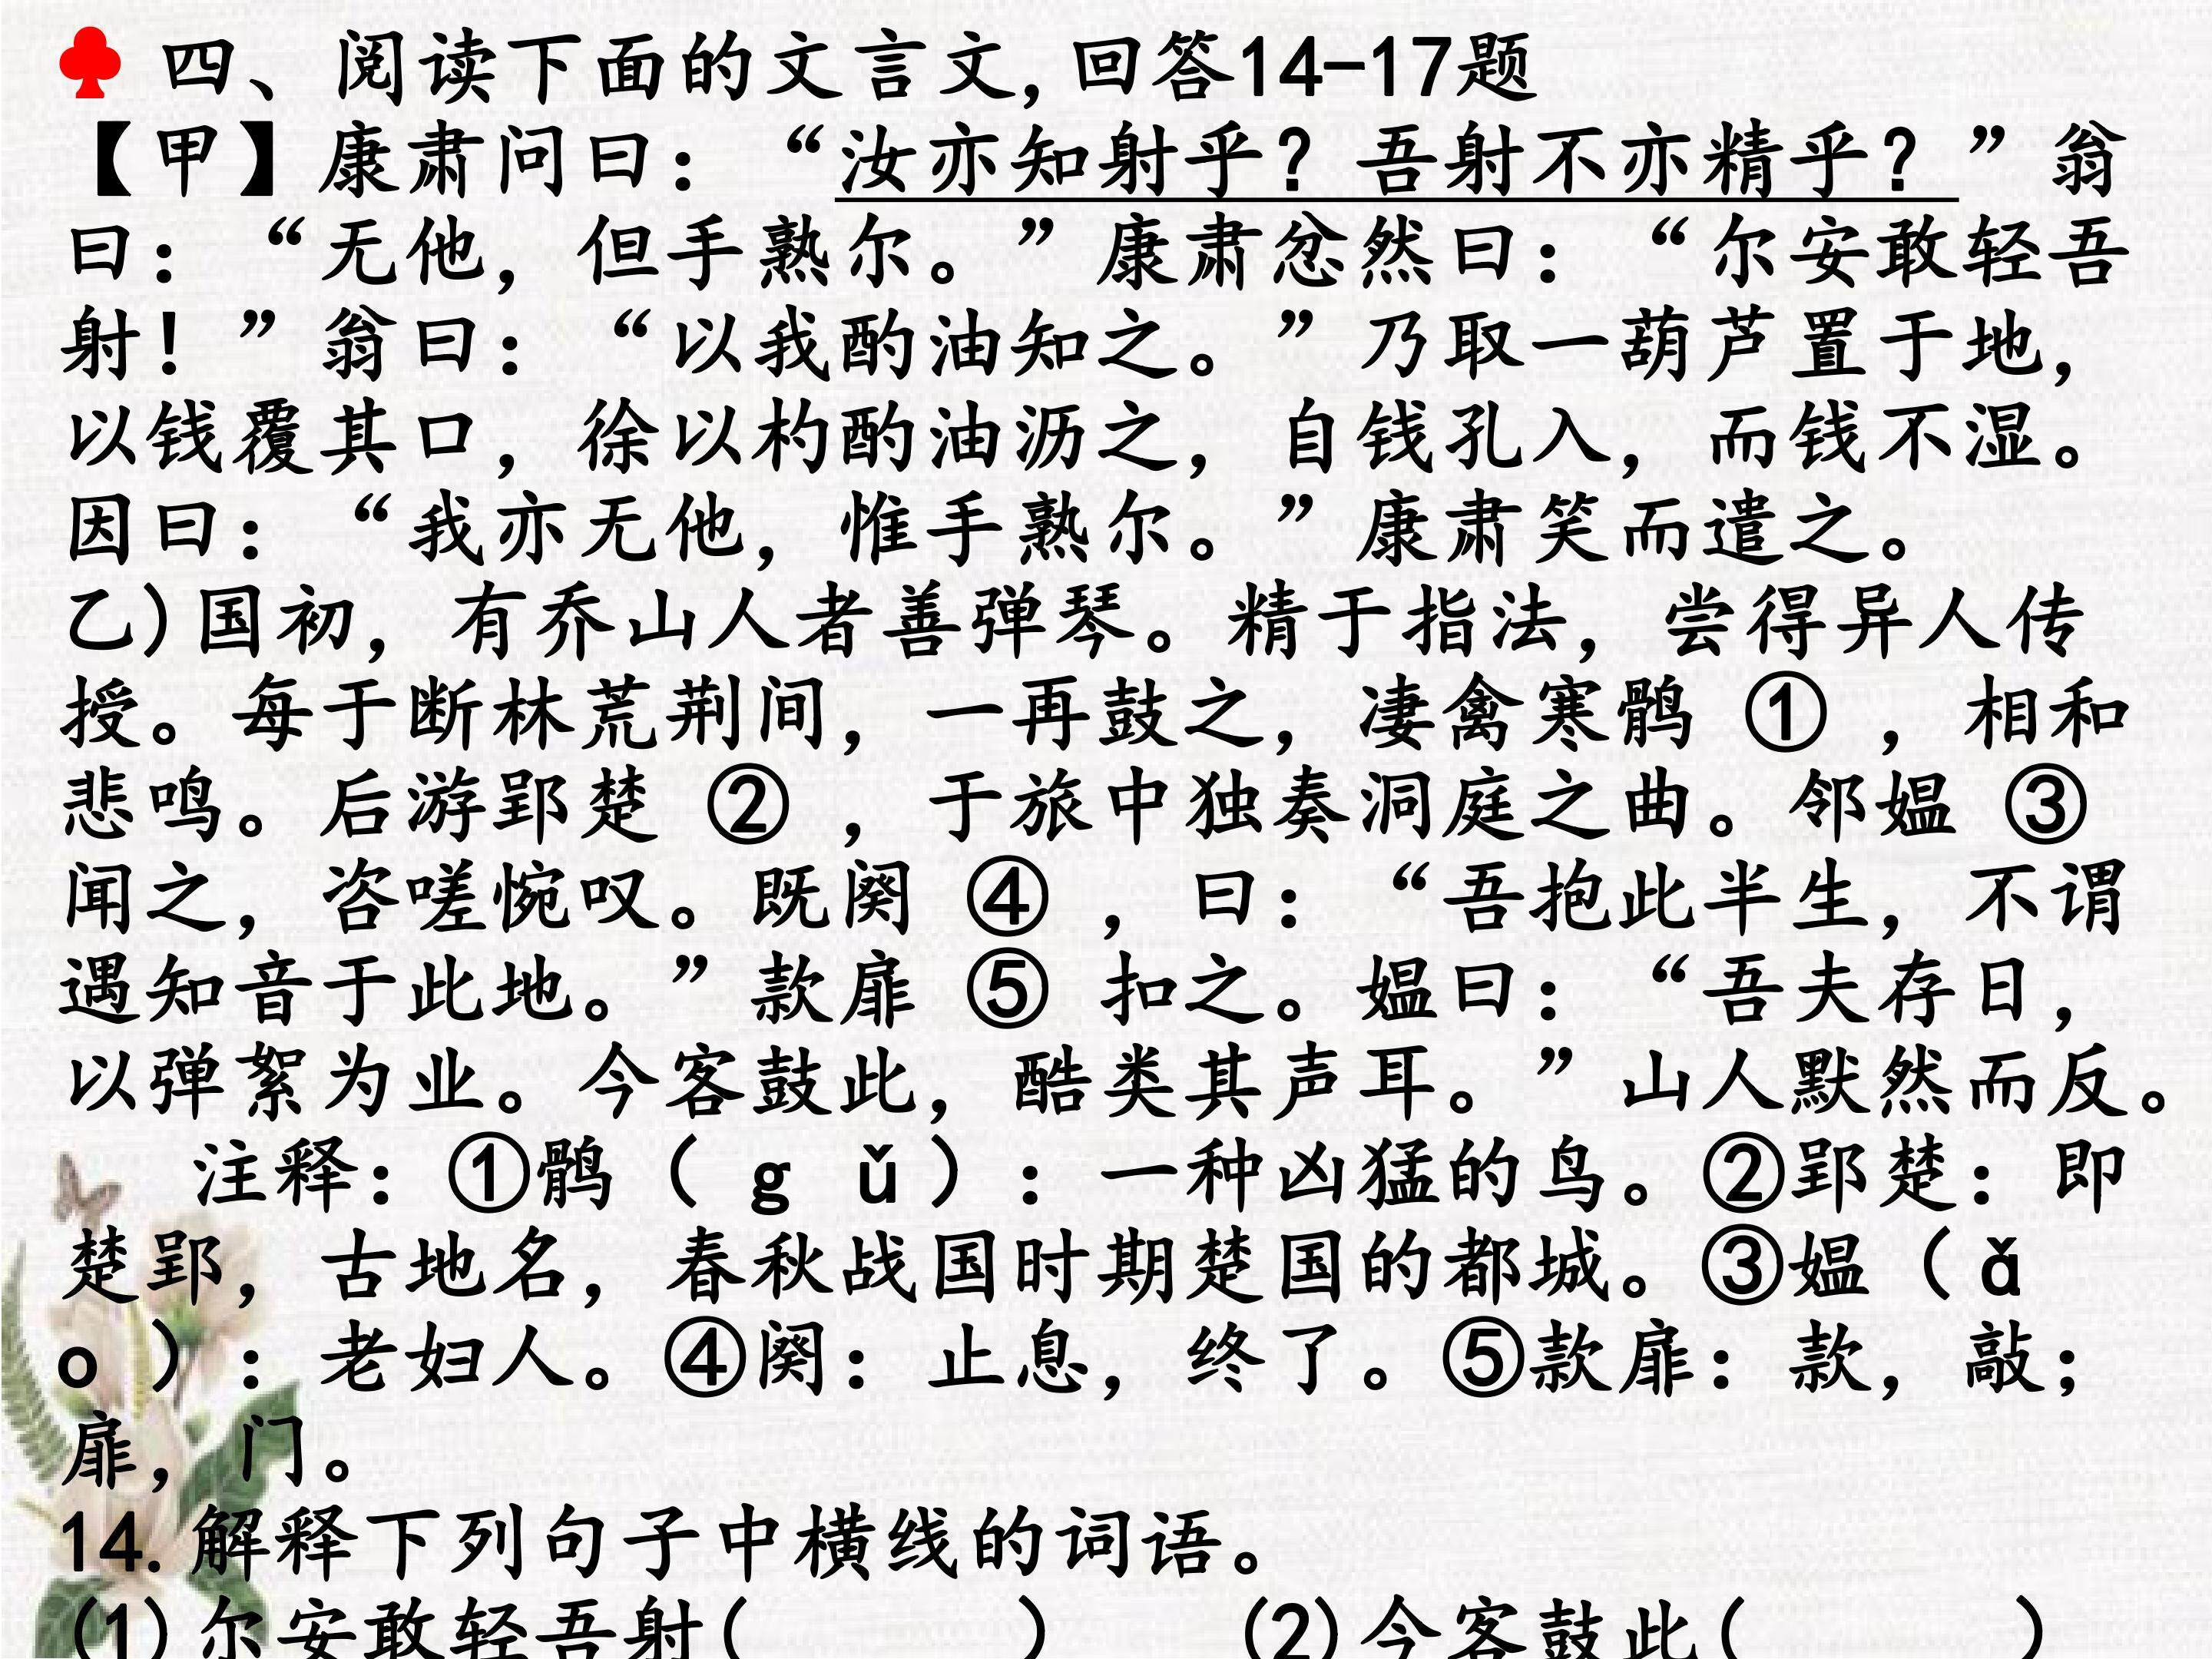 ♣ 四、阅读下面的文言文,回答14-17题
【甲】康肃问曰：“汝亦知射乎？吾射不亦精乎？”翁
曰：“无他，但手熟尔。”康肃忿然曰：“尔安敢轻吾
射！”翁曰：“以我酌油知之。”乃取一葫芦置于地，
以钱覆其口，徐以杓酌油沥之，自钱孔入，而钱不湿。
因曰：“我亦无他，惟手熟尔。”康肃笑而遣之。
乙)国初，有乔山人者善弹琴。精于指法，尝得异人传
授。每于断林荒荆间，一再鼓之，凄禽寒鹘 ① ，相和
悲鸣。后游郢楚 ② ，于旅中独奏洞庭之曲。邻媪 ③
闻之，咨嗟惋叹。既阕 ④ ，曰：“吾抱此半生，不谓
遇知音于此地。”款扉 ⑤ 扣之。媪曰：“吾夫存日，
以弹絮为业。今客鼓此，酷类其声耳。”山人默然而反。
注释：①鹘（ g ǔ ）：一种凶猛的鸟。②郢楚：即
楚郢，古地名，春秋战国时期楚国的都城。③媪（ ǎ
o ）：老妇人。④阕：止息，终了。⑤款扉：款，敲；
扉，门。
14.解释下列句子中横线的词语。
(1)尔安敢轻吾射( ) (2)今客鼓此( )